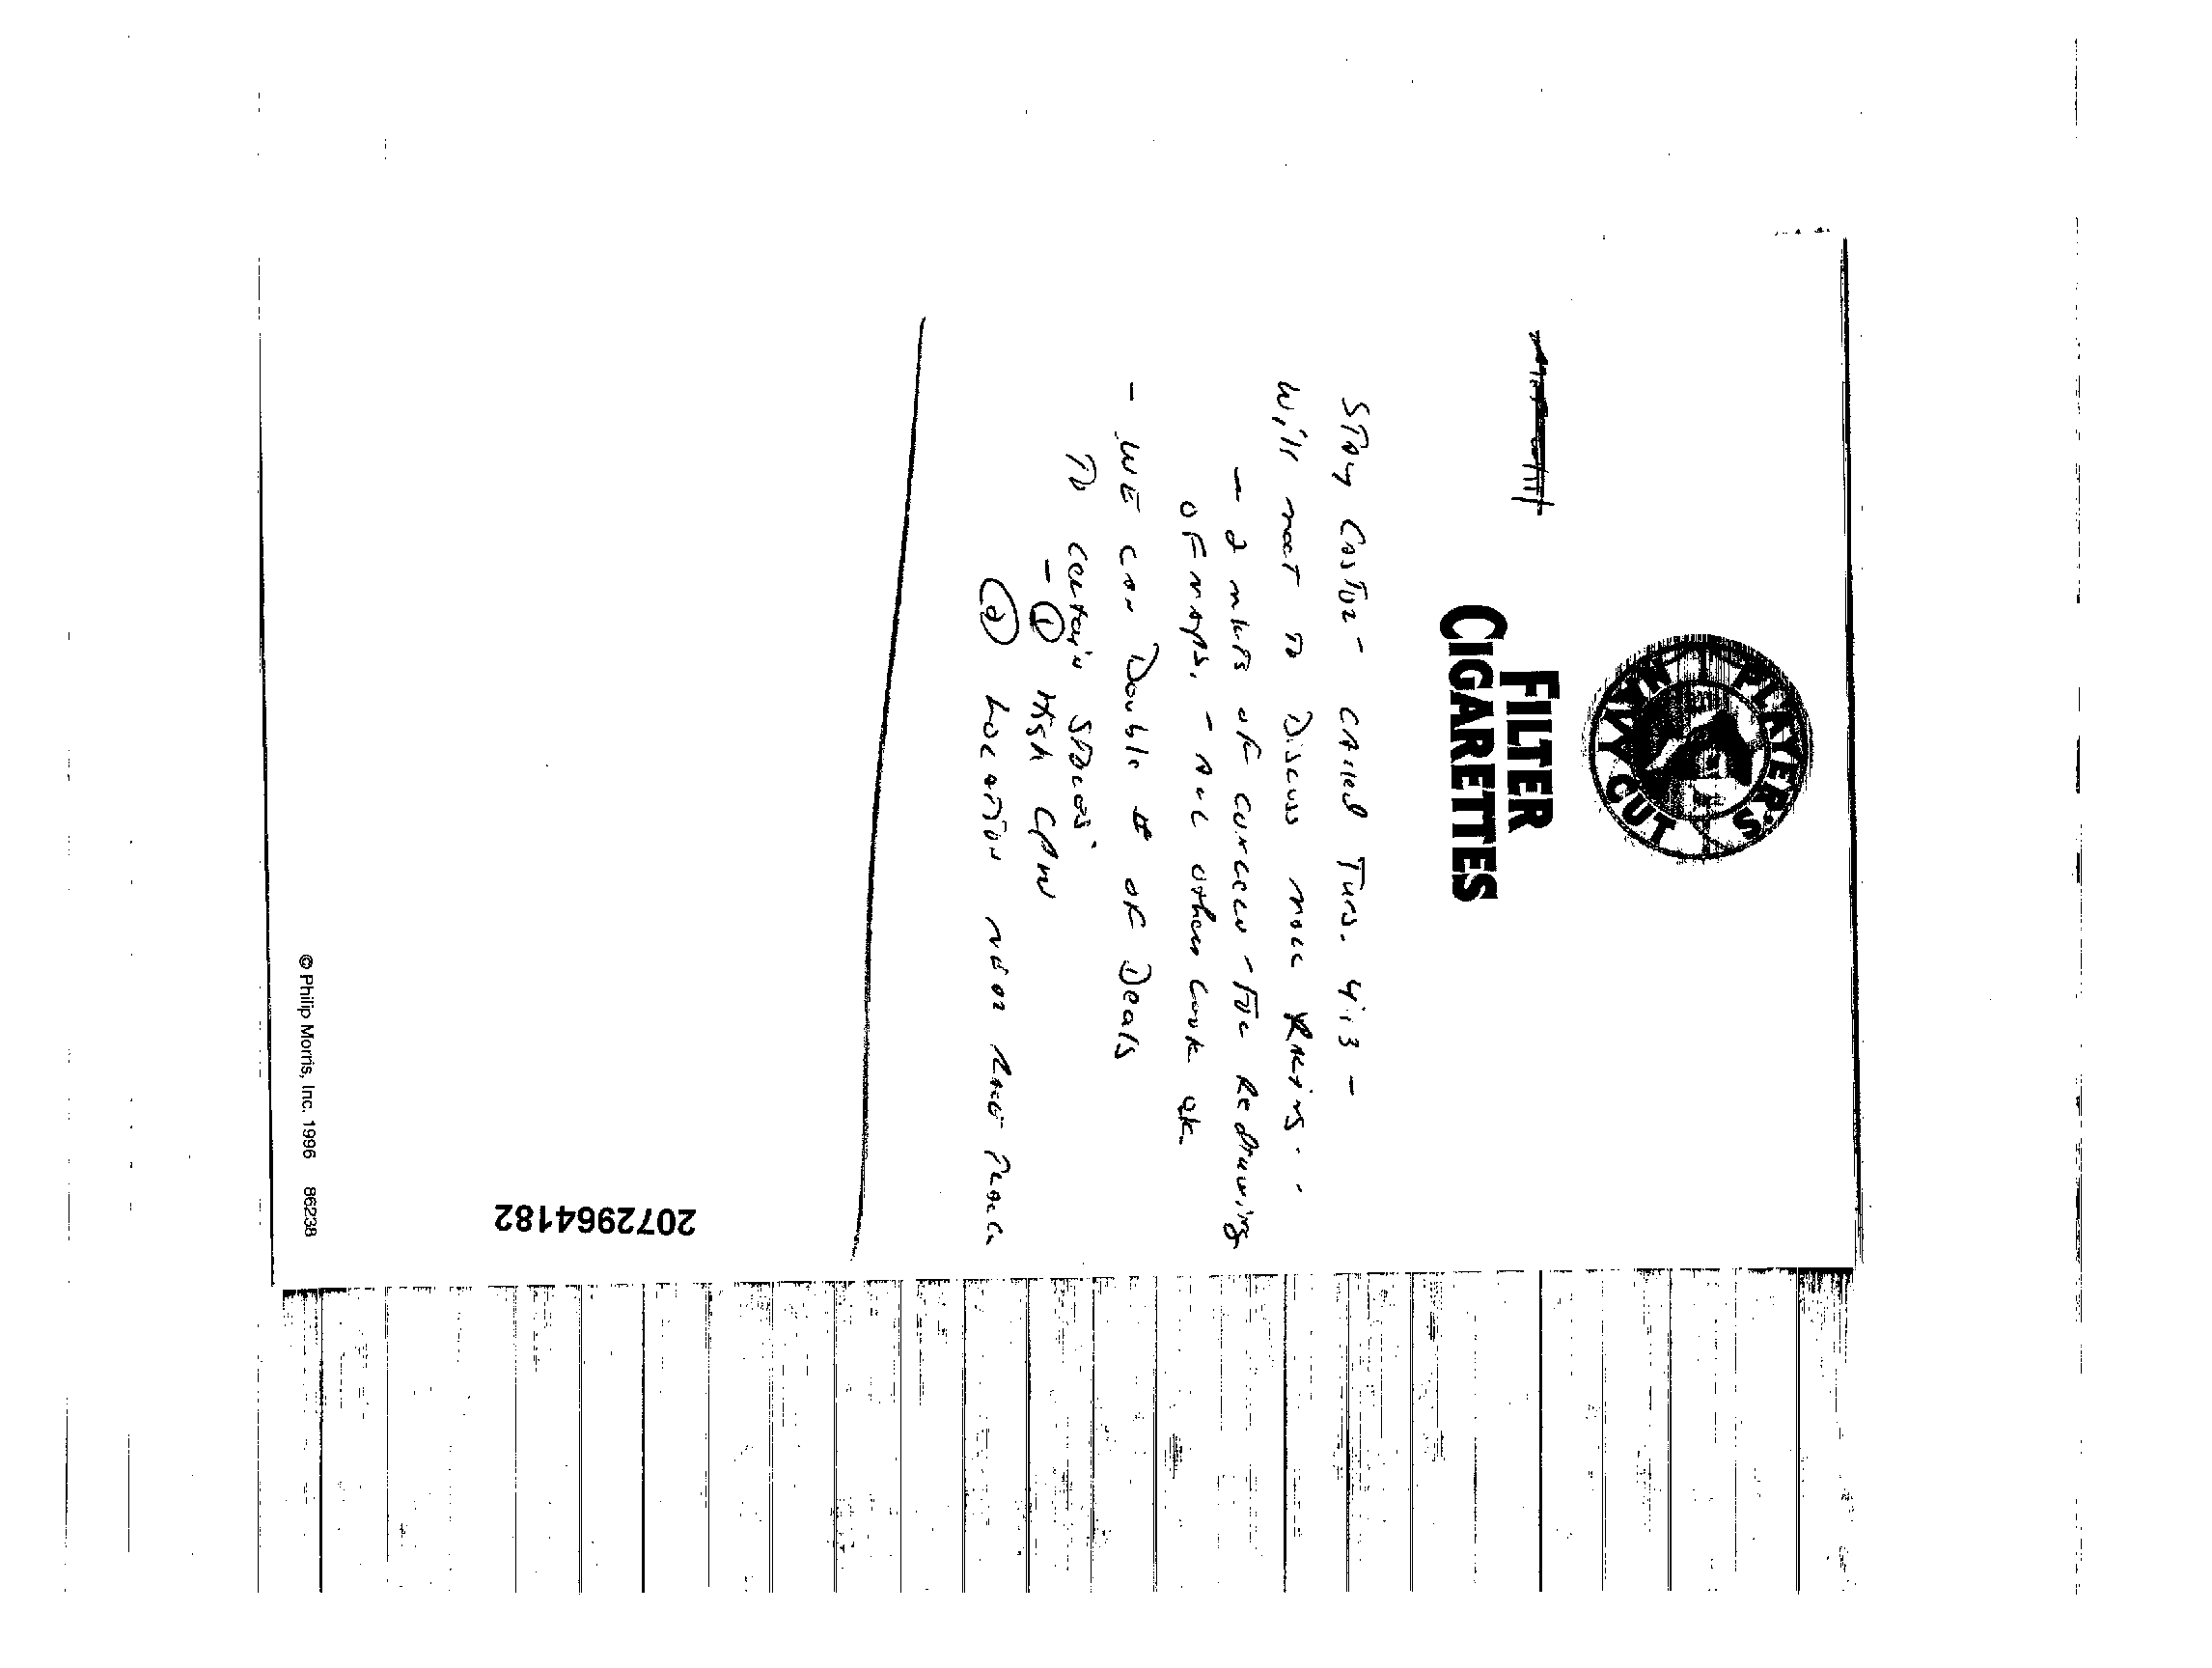 PLAYER'S
NAVY CUT
FILTER
CIGARETTES
Stay Costor - called Tues. 4:13 -
will meet to Discuss more
- 2 mkts of concern - For Redrawing
of maps. - All others look ok
- WE can Double # of Deals
To certain stores.
- ① High CPW
② Location near
© Philip Morris, Inc. 1996 86238
2072964182